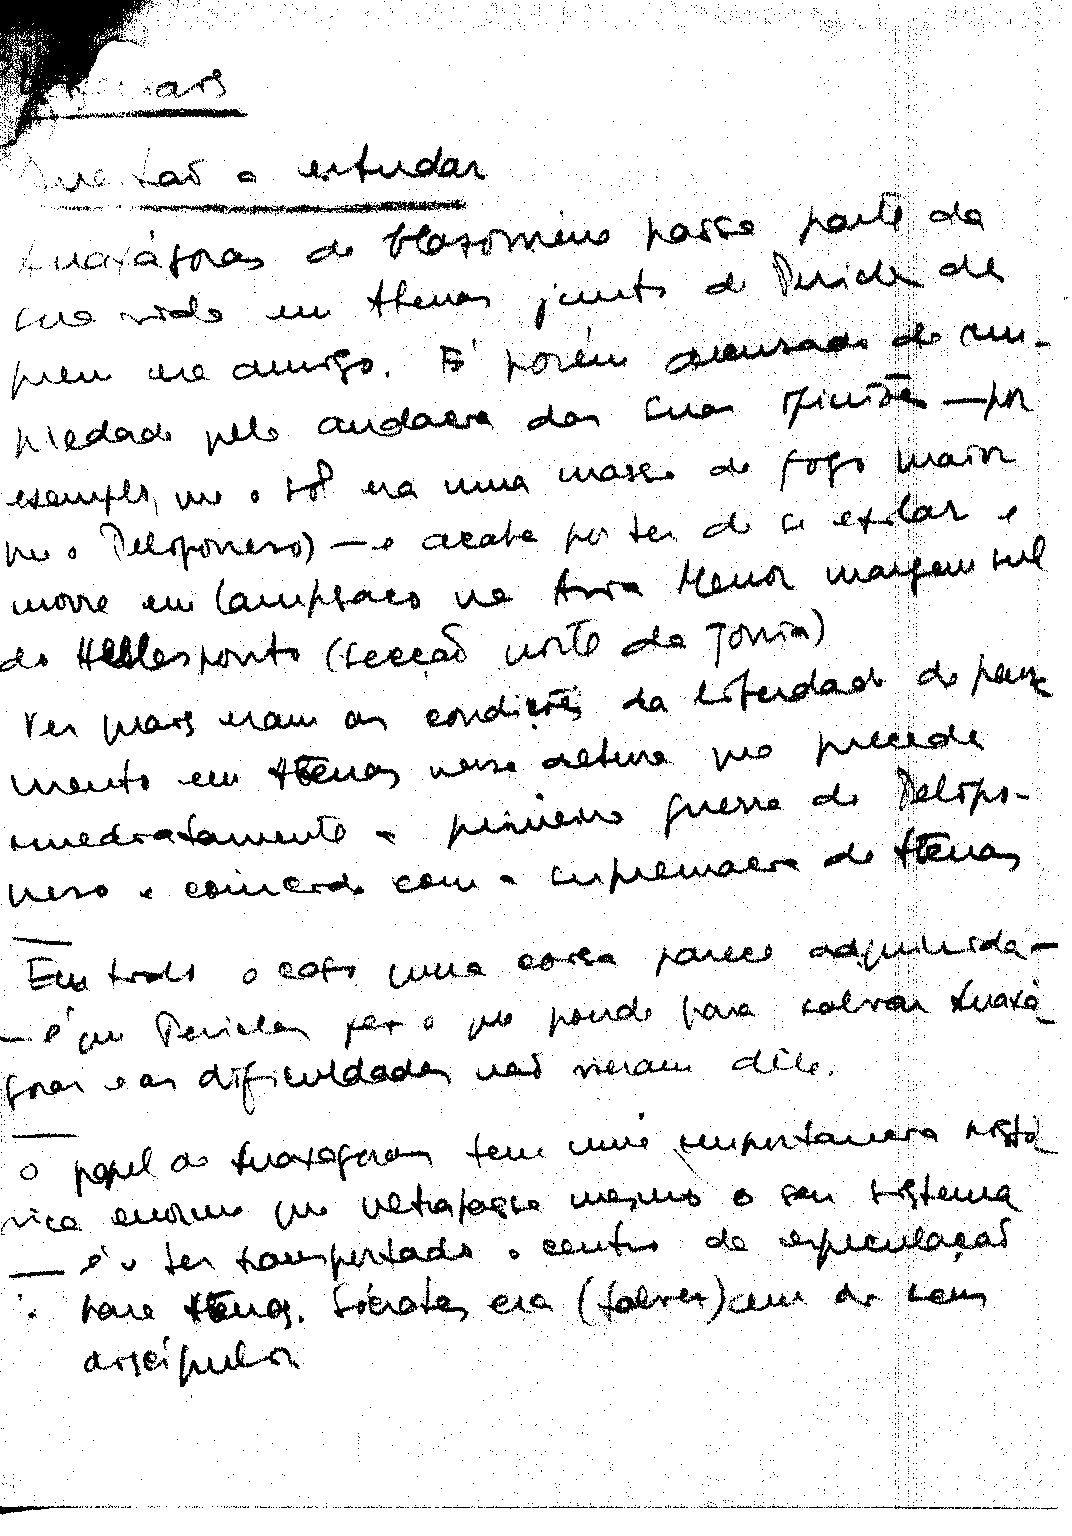 Questão a estudar
Anaxágoras de Clazomène passa parte da
sua vida em Atenas junto de Pericles de
quem era amigo. É porém acusado de im-
piedade pela audacia das suas opiniões — por
exemplo, que o sol era uma massa de fogo maior
que o Peloponeso) — e acaba por ter de se exilar e
morre em Lampsaco na Asia Menor margem sul
do Hellesponto (secção norte da Jonia)
Ver quais eram as condições da liberdade de pensa
mento em Atenas nessa altura que precede
imediatamente a primeira guerra do Pelopo-
neso e coincide com a supremacia de Atenas
Em todo o caso uma coisa parece adquirida —
— é que Pericles fez o que poude para salvar Anaxá
goras e as dificuldades não vieram dele.
O papel de Anaxagoras tem uma importancia histó
rica enorme que ultrapassa mesmo o seu sistema
— é o ter transportado o centro da especulação
para Atenas. Sócrates era (talvez) um dos seus
discípulos